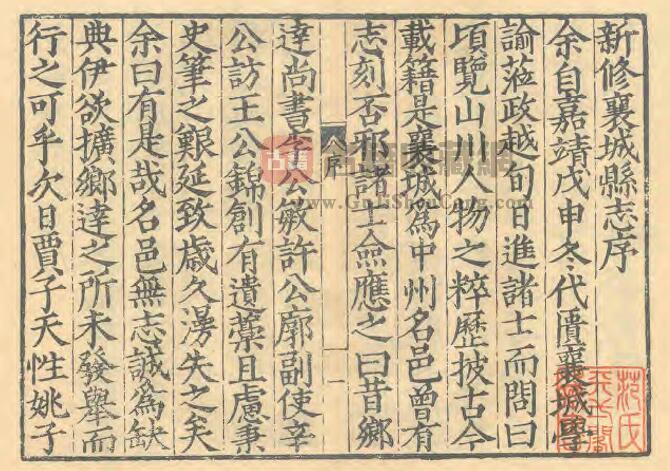 新修襄城縣志序
余自嘉靖戊申冬代匱襄城學
諭蒞政越旬日進諸士而問曰
頃覽山川人物之粹歷披古今
載籍是襄城為中州名邑曾有
志刻否邪諸士僉應之曰昔鄉
序
一
達尚書李公敏許公廓副使辛
公訪王公錦創有遺藁且慮秉
史筆之艱延致歲久湯失之矣
余曰有是哉名邑無志誠為缺
典伊欲擴鄉達之所未發舉而
行之可乎次日賈子天性姚子
范氏
www.GuJiShouCang.com